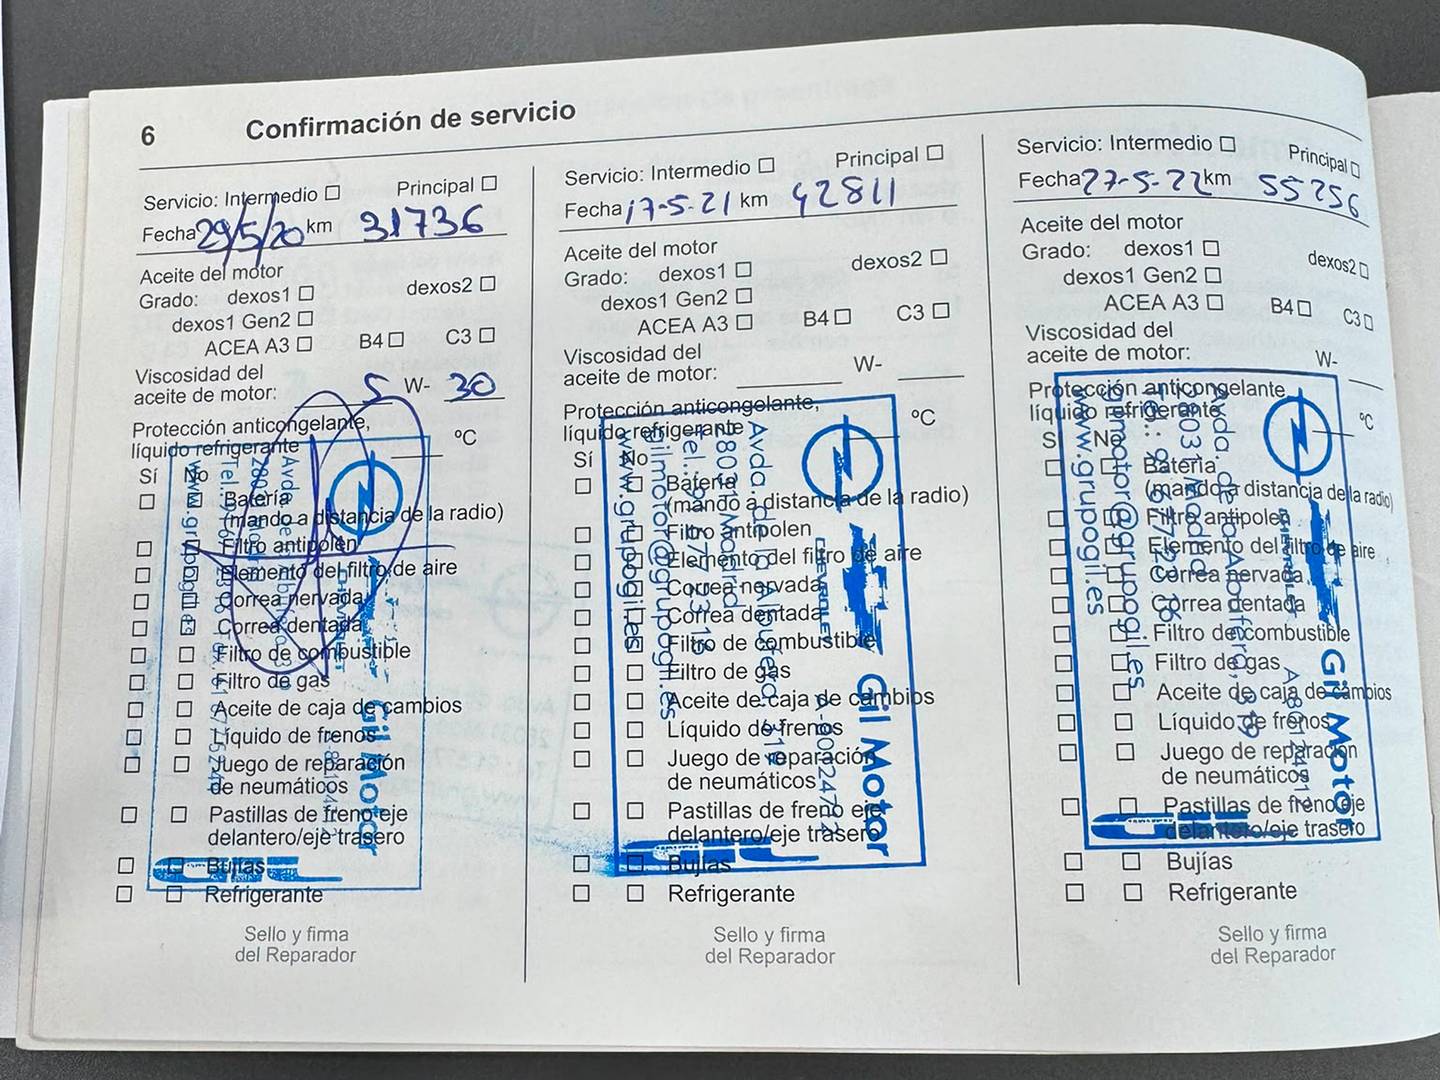 6 Confirmación de servicio
Servicio: Intermedio Principal
Fecha 29/5/20 km 31736
Aceite del motor
Grado: dexos1 dexos2
dexos1 Gen2
ACEA A3 B4 C3
Viscosidad del
aceite de motor: 5 W- 30
Protección anticongelante,
líquido refrigerante ºC
Sí No
Batería
(mando a distancia de la radio)
Filtro antipolen
Elemento del filtro de aire
Correa nervada
Correa dentada
Filtro de combustible
Filtro de gas
Aceite de caja de cambios
Líquido de frenos
Juego de reparación
de neumáticos
Pastillas de freno eje
delantero/eje trasero
Bujías
Refrigerante
CHEVROLET
Gil Motor
Sello y firma
del Reparador
Servicio: Intermedio Principal
Fecha 17-5-21 km 42811
Aceite del motor
Grado: dexos1 dexos2
dexos1 Gen2
ACEA A3 B4 C3
Viscosidad del
aceite de motor: W-
Protección anticongelante,
líquido refrigerante ºC
Sí No
Batería
(mando a distancia de la radio)
Filtro antipolen
Elemento del filtro de aire
Correa nervada
Correa dentada
Filtro de combustible
Filtro de gas
Aceite de caja de cambios
Líquido de frenos
Juego de reparación
de neumáticos
Pastillas de freno eje
delantero/eje trasero
Bujías
Refrigerante
CHEVROLET
Gil Motor
Avda. de la Albufera, 319
28031 Madrid
gilmotor@grupogil.es
www.grupogil.es
Sello y firma
del Reparador
Servicio: Intermedio Principal
Fecha 27-5-22 km 55256
Aceite del motor
Grado: dexos1 dexos2
dexos1 Gen2
ACEA A3 B4 C3
Viscosidad del
aceite de motor: W-
Protección anticongelante,
líquido refrigerante ºC
Sí No
Batería
(mando a distancia de la radio)
Filtro antipolen
Elemento del filtro de aire
Correa nervada
Correa dentada
Filtro de combustible
Filtro de gas
Aceite de caja de cambios
Líquido de frenos
Juego de reparación
de neumáticos
Pastillas de freno eje
delantero/eje trasero
Bujías
Refrigerante
CHEVROLET
Gil Motor
Avda. de la Albufera, 319
28031 Madrid
gilmotor@grupogil.es
www.grupogil.es
Sello y firma
del Reparador